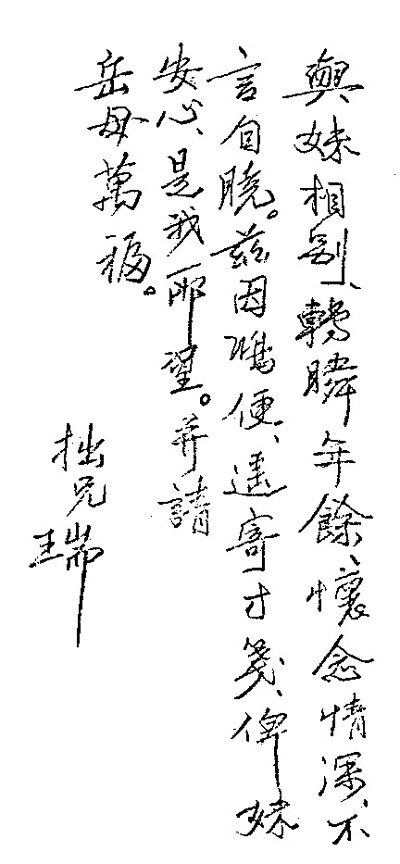 與妹相别、轉瞬年餘、懷念情深、不
言自曉。茲因鴻便、遥寄寸箋、俾妹
安心、是我所望。并請
岳母萬福。
拙兄
瑞